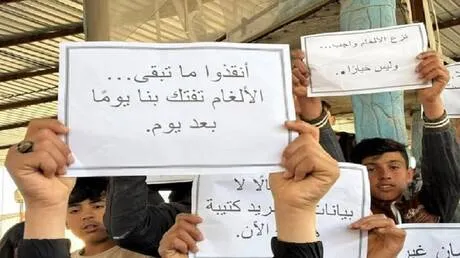 أنقذوا ما تبقى...
الألغام تفتك بنا يومًا
بعد يوم.
نزع الألغام واجب...
وليس خيارًا*.
لا
بيانات
كتيبة
الآن.
غير